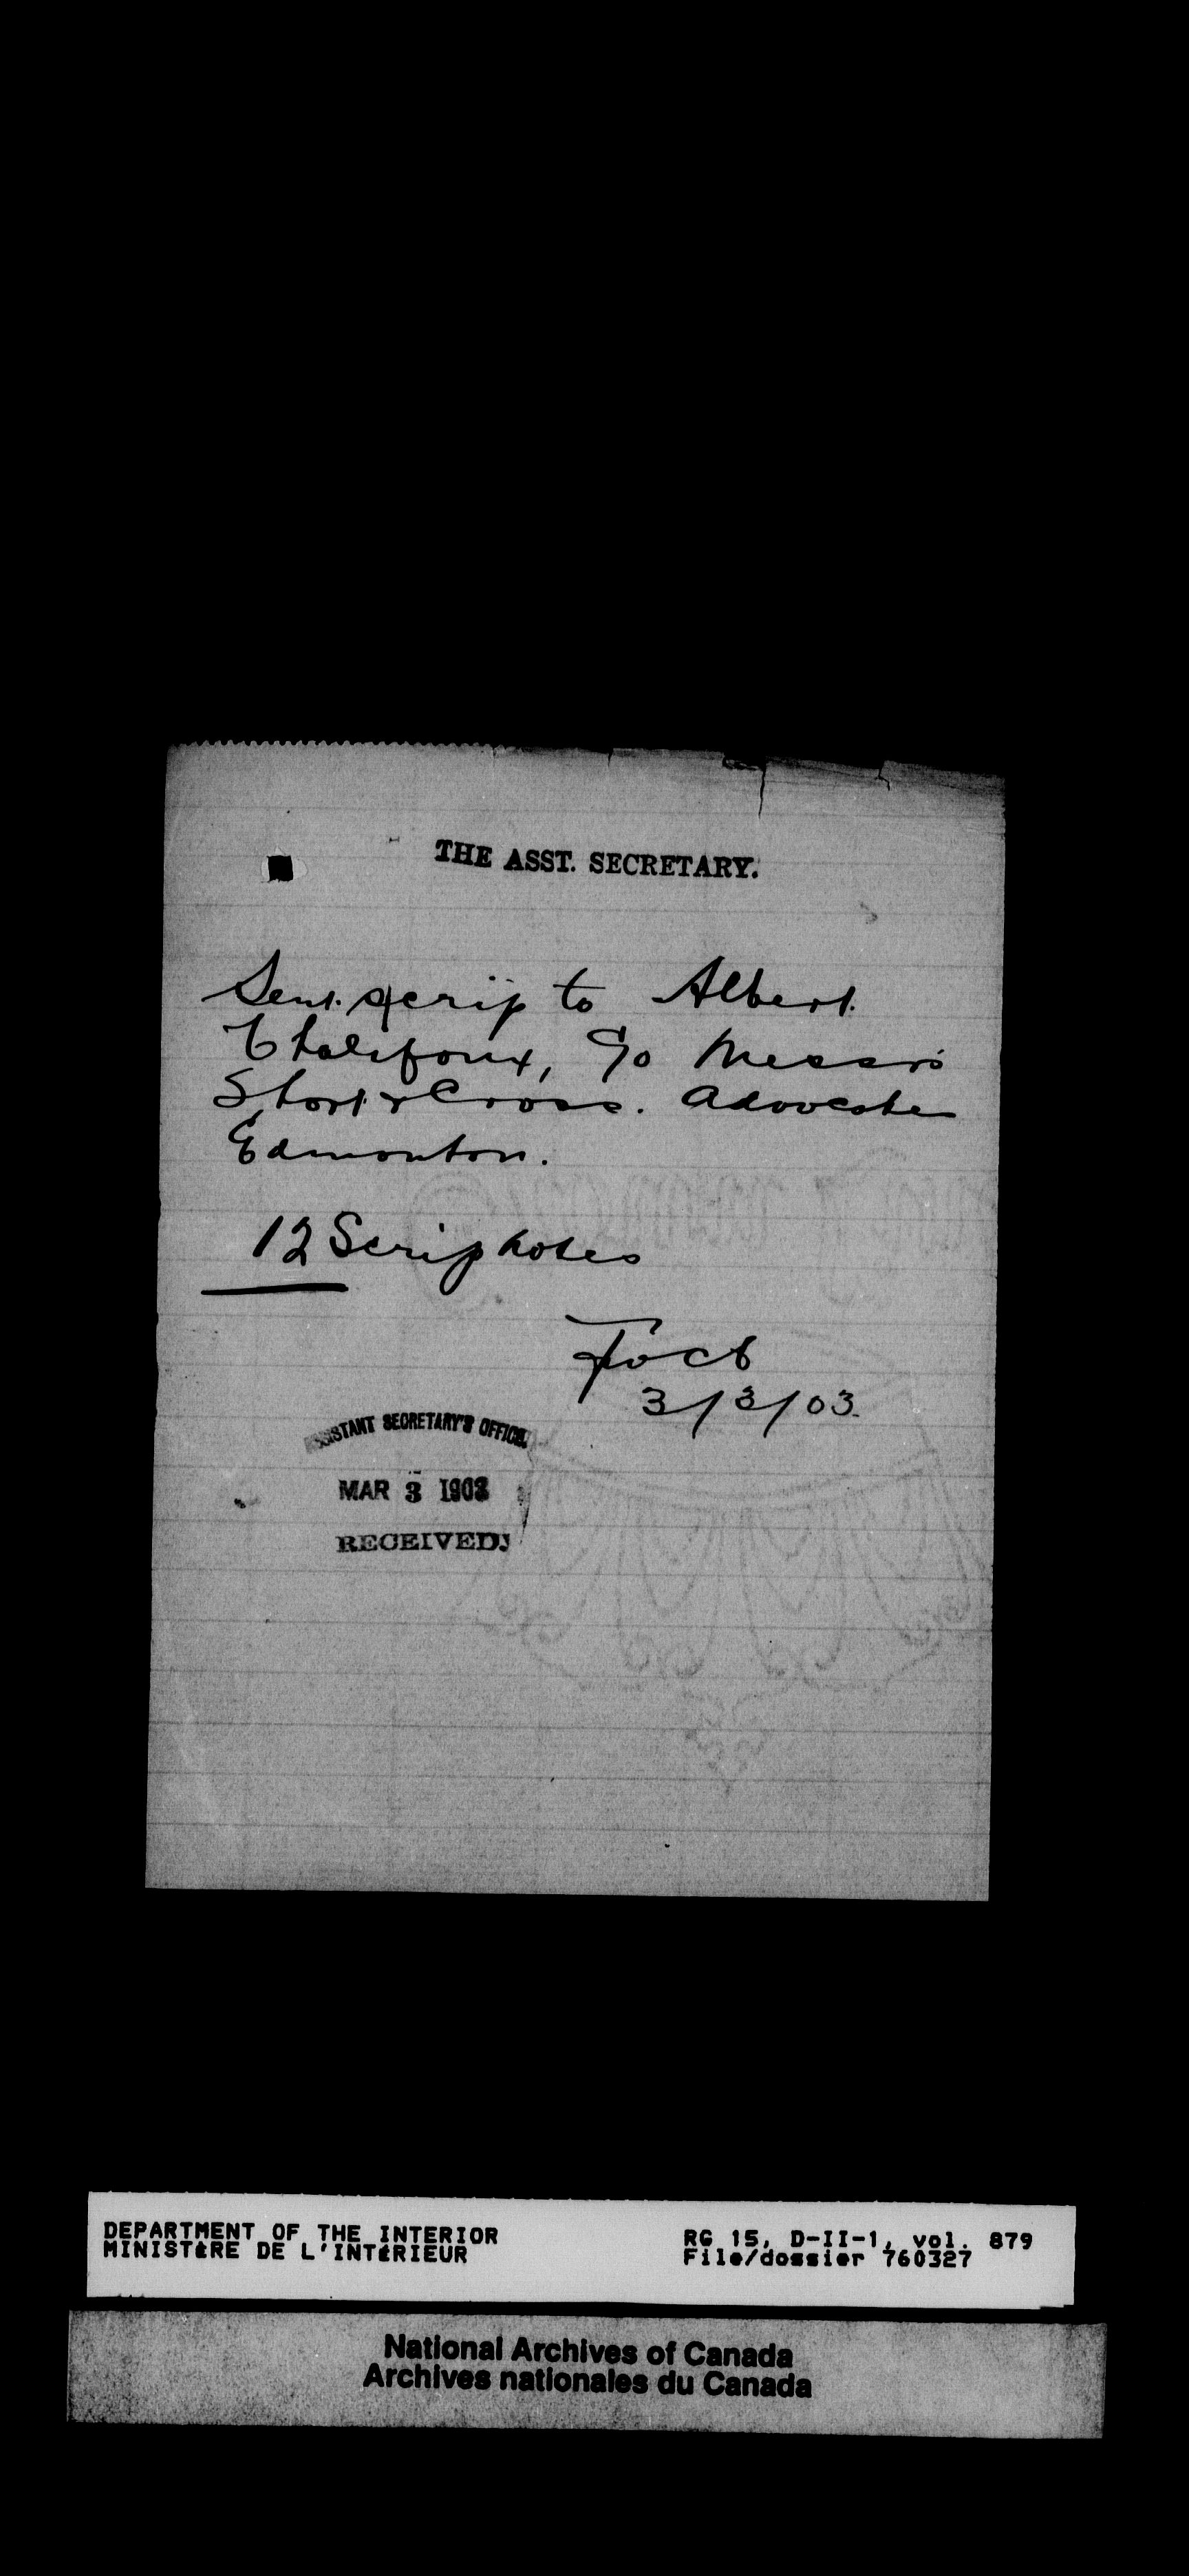 THE ASST. SECRETARY.
Sent scrip to Albert
Chalifoux, c/o Messrs
Short & Cross. Advocates
Edmonton.
12 Scrip notes
3/3/03.
ASSISTANT SECRETARY'S OFFICE.
MAR 3 1903
RECEIVED.
DEPARTMENT OF THE INTERIOR
MINISTÈRE DE L'INTÉRIEUR
RG 15, D-II-1, vol. 879
File/dossier 760327
National Archives of Canada
Archives nationales du Canada